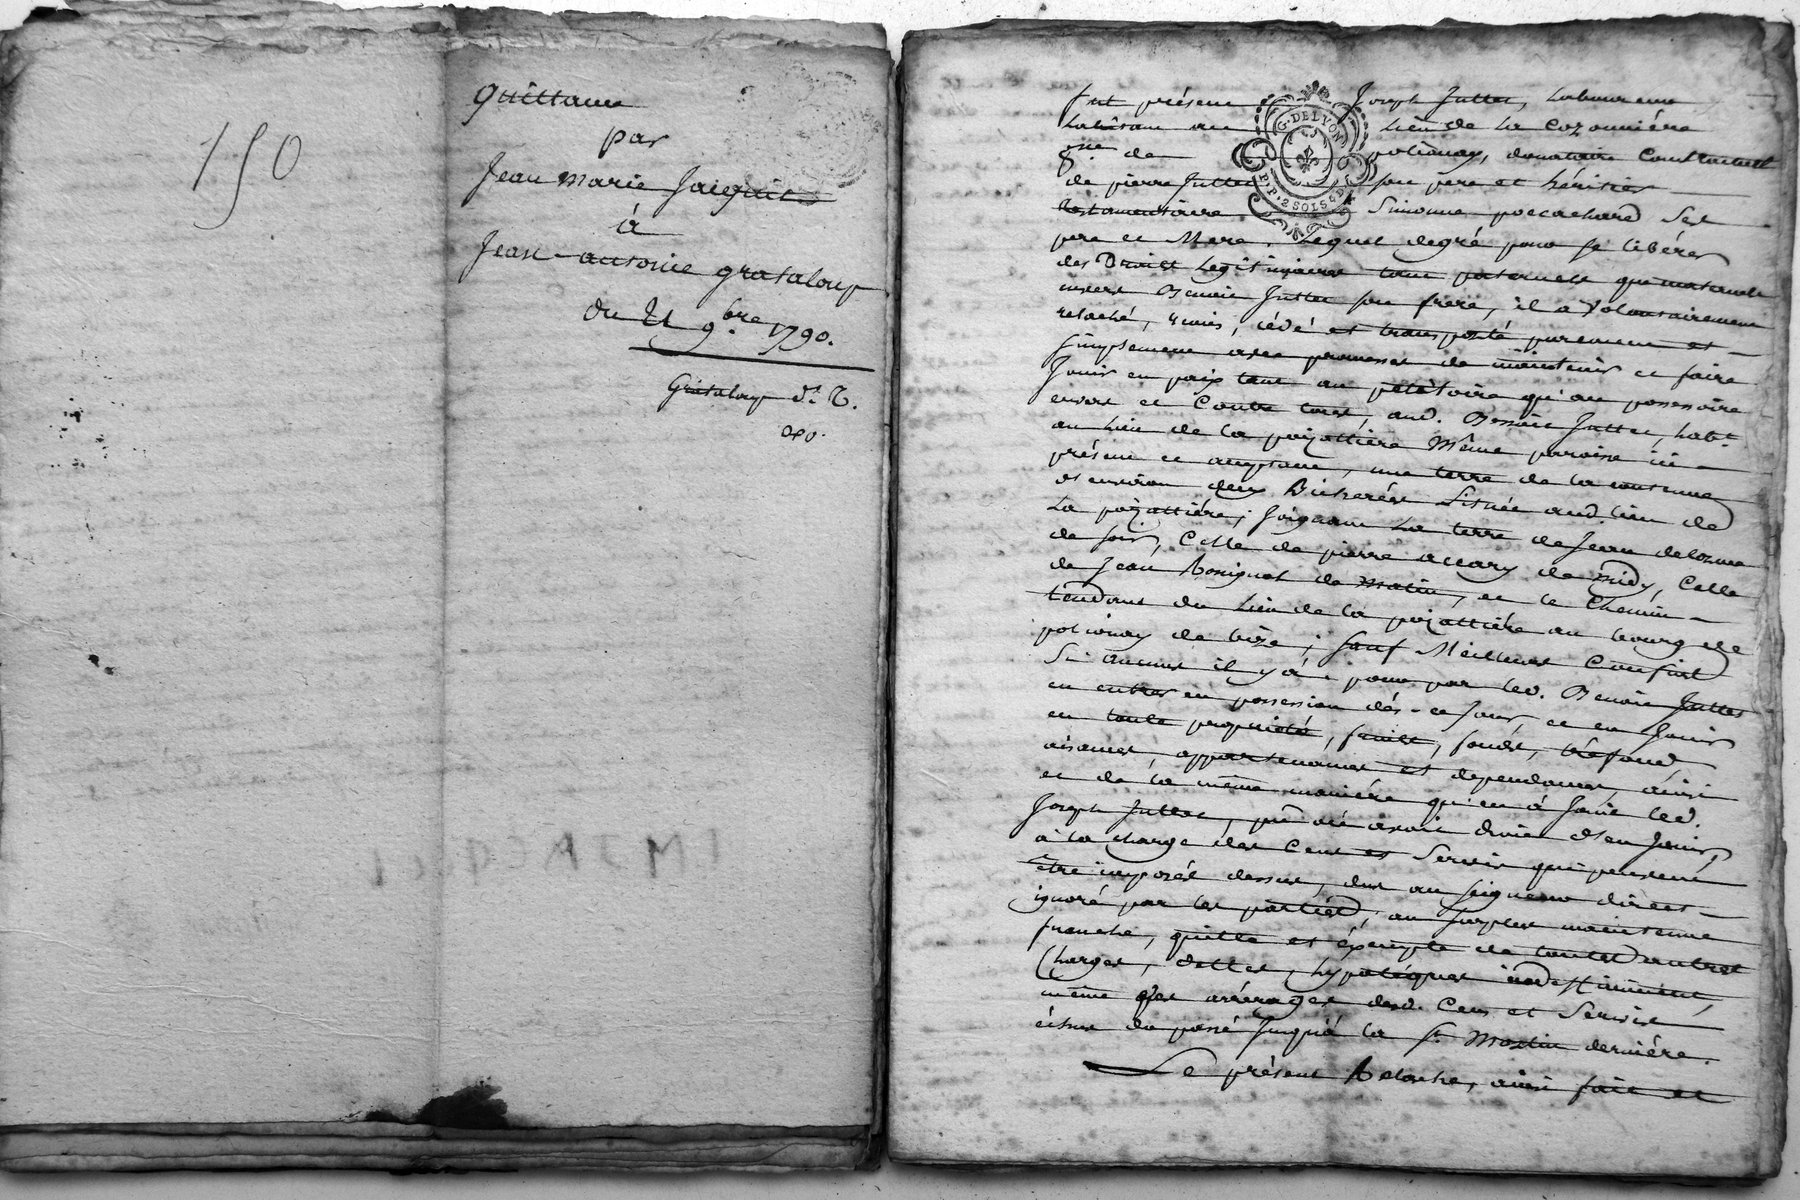 150
Quittance
par
Jean Marie Jacquit
à
Jean antoine grataloup
du 21 9.bre 1790.
Grataloup
fut présent Joseph Juttet, Laboureur
habitant au Lieu de la
de polionay, donataire Contractuel
de pierre Juttet son pere et héritier
testamentaire Simonne ses
pere et Mere, Lequel degré pour se libérer
des Droits Legitimaires tant paternels que maternels
envers Benoit Juttet son frere, il a Volontairement
relaché, remis, cédé et transporté purement et
simplement avec promesses de maintenir et faire
Jouir en paix tant au petitoire qu'au possessoire
envers et Contre tous, aud. Benoit Juttet, habt.
au Lieu de la pizottière Même paroisse ici
présent et acceptant, une terre de la contenue
d'environ deux Bicherées Située aud. lieu de
La pizottière; Joignant La terre de Jean delorme
de soir, Celle de pierre accary de midy, Celle
de Jean Rossignol de matin, et le Chemin
tendant du Lieu de la pizottière au bourg de
polionay de bize; sauf Meilleurs Confins
Si aucuns il y à; pour par led. Benoit Juttet
en entrer en possession dés-ce jour, et en Jouir
en toute propriété, fruits, fonds, tréfonds
aisances, appartenances et dependances, ainsi
et de la même manière qu'en à Joui led.
Joseph Juttet, avoit droit d'en Jouir,
à la charge des Cens et Servis qui peuvent
être imposés dessus, dus au seigneur direct
ignoré par les parties, au surplus maintenue
franche, quitte et éxempte de toutes autres
Charges, dettes, hypotéques indéfiniment,
même des arrérages desd. Cens et Servis
échus du passé Jusqu'à la St. Martin dernière.
Le présent Relache, ainsi fait et
G. DE LYON
P.P. 2 SOLS 4 D.